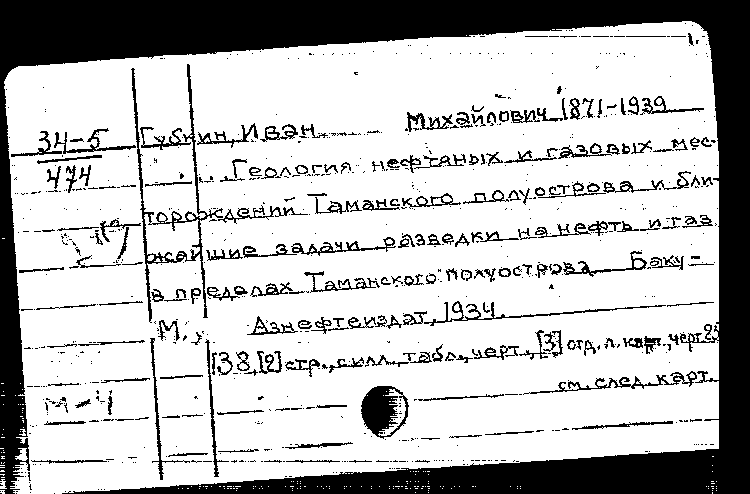 1.
34-5
474
Губкин, Иван Михайлович 1871-1939
. . . Геология нефтяных и газовых мес-
торождений Таманского полуострова и бли-
жайшие задачи разведки на нефть и газ
в пределах Таманского полуострова Баку-
М., Азнефтеиздат, 1934.
138, [2] стр., с илл., табл., черт., [3] отд. л. карт, черт. 25
см. след. карт.
М-4